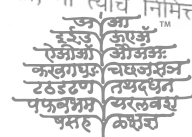 निमित्त
TM
अ आ
इईउ
औअंअः
कखगघङ चछजझञ
टठडढण तथदधन
पफबभम यरलवश
षसह ळक्षज्ञ